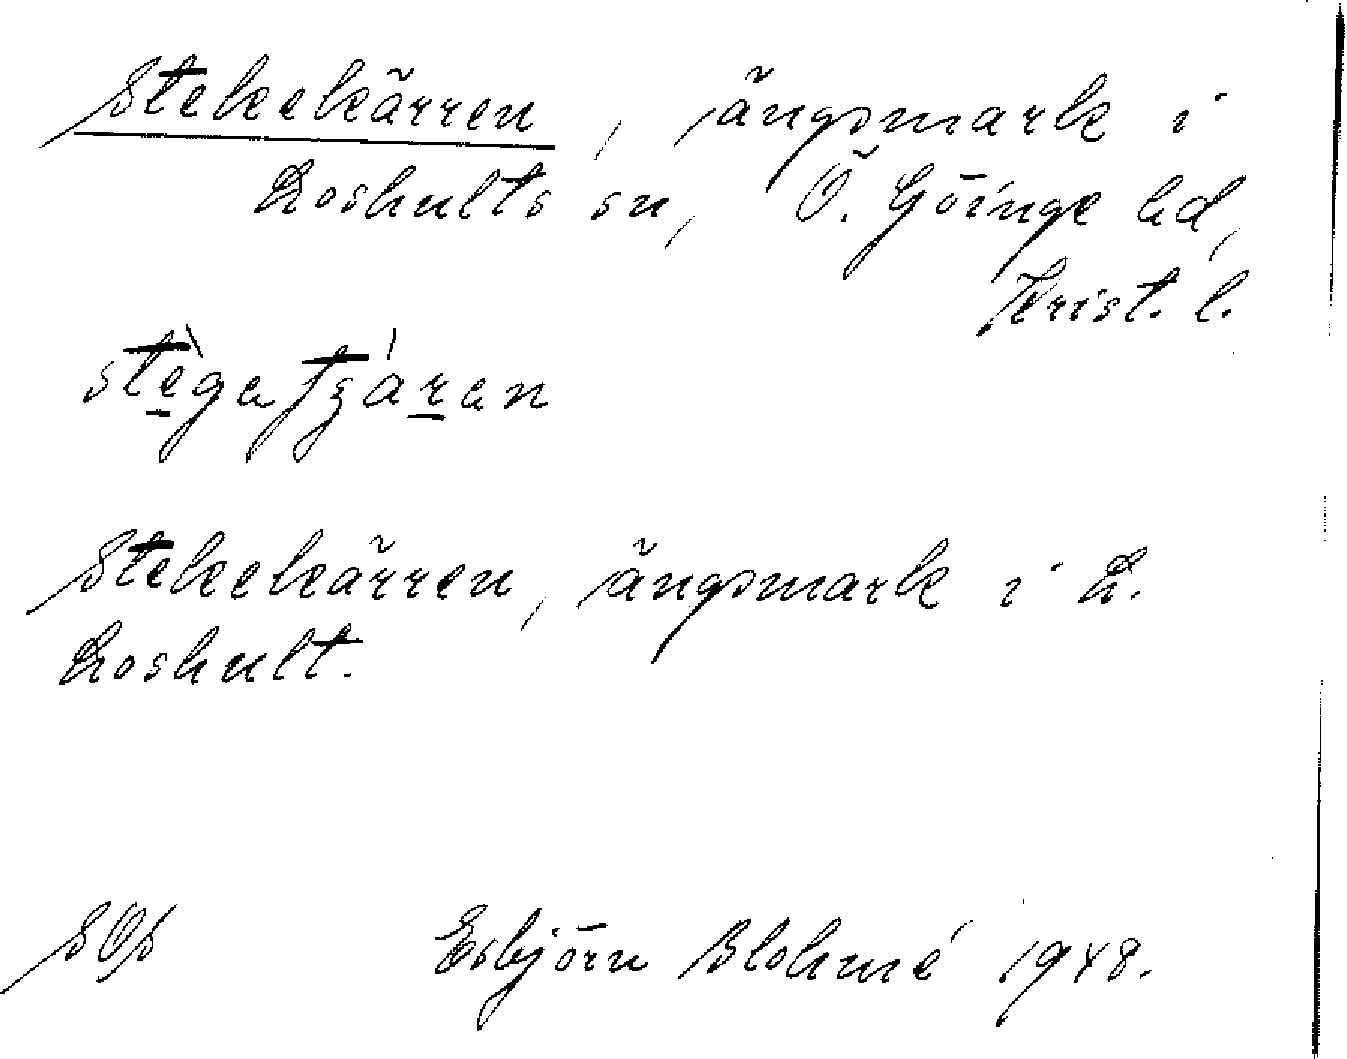 Stekekärren, ängsmark i
Loshults sn, Ö. Göinge hd,
Krist. l.
Stekekärren, ängsmark i L.
Loshult.
SOS Esbjörn Blohmé 1948.